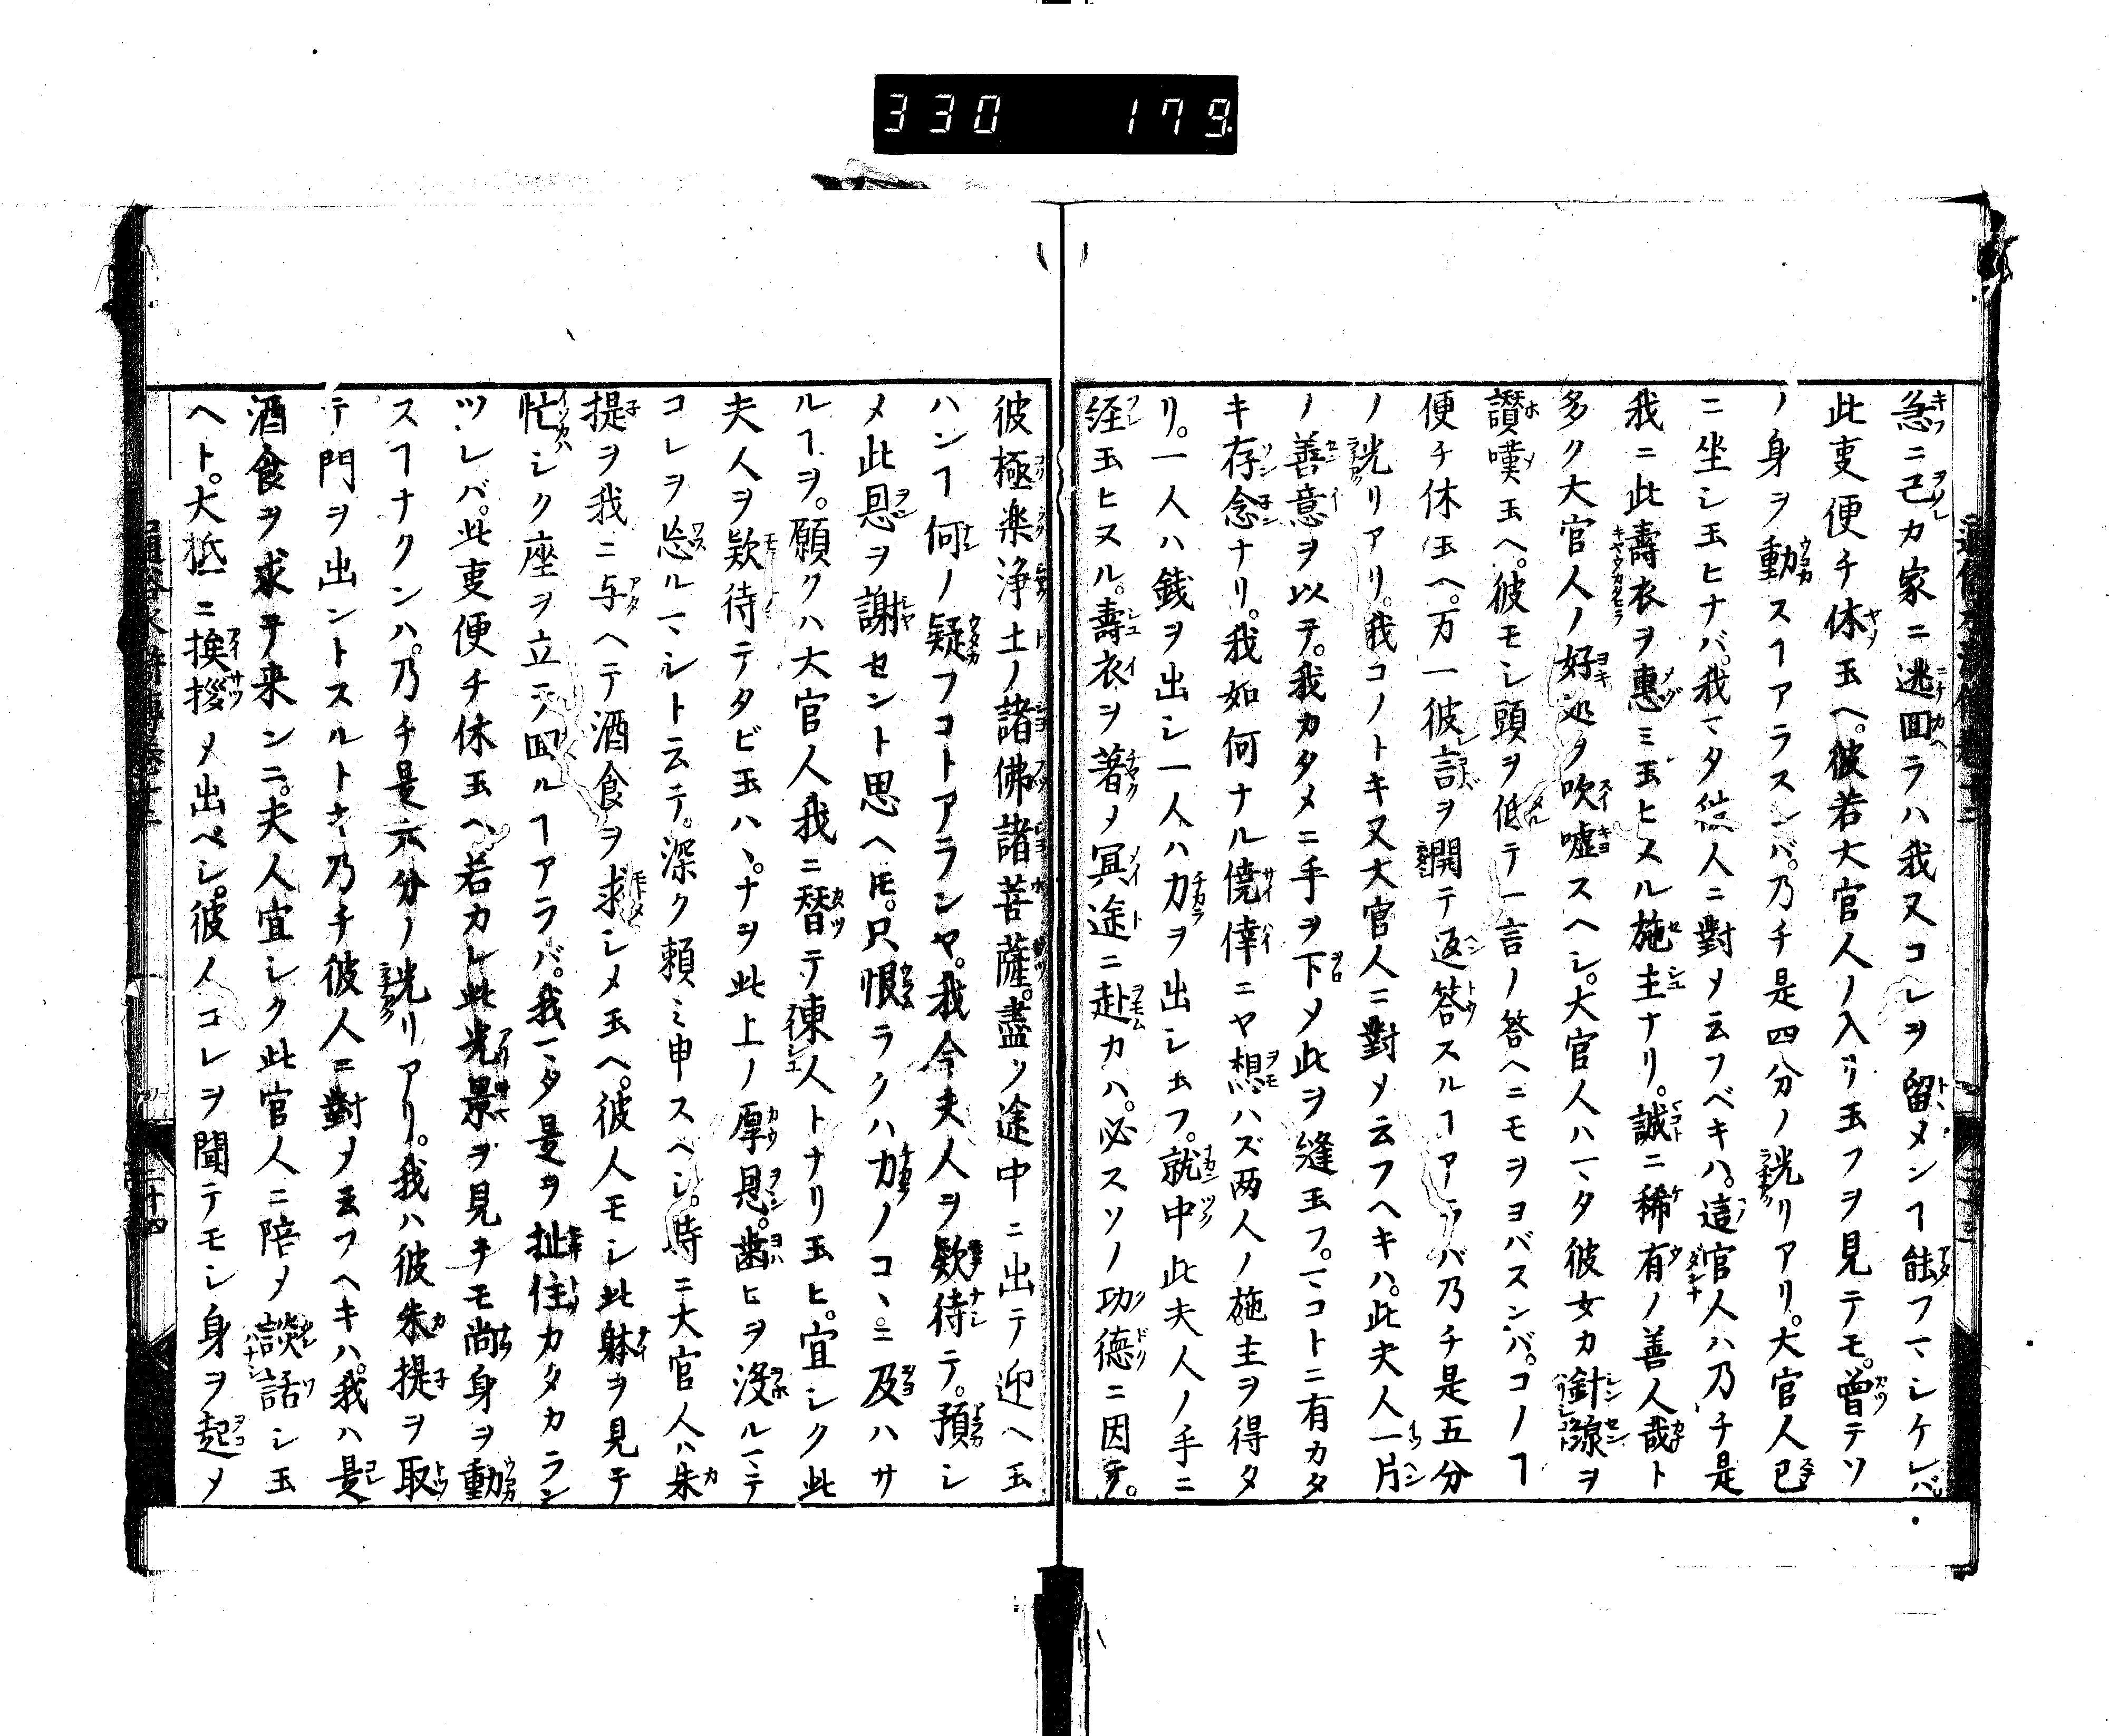 330 179
急ニ己カ家ニ逃囬ラハ我又コレヲ留メンヿ能フマシケレバ。
此叓便チ休玉ヘ。彼若大官人ノ入リ玉フヲ見テモ。曽テソ
ノ身ヲ動スヿアラスンバ。乃チ是四分ノ訧リアリ。大官人已
ニ坐シ玉ヒナバ。我マタ彼人ニ對メ云フベキハ。這官人ハ乃チ是
我ニ此壽衣ヲ惠ミ玉ヒヌル施主ナリ。誠ニ稀有ノ善人哉ト
多ク大官人ノ好処ヲ吹嘘スヘシ。大官人ハマタ彼女カ針線ヲ
讃嘆玉ヘ。彼モシ頭ヲ低テ一言ノ答ヘニモヲヨバスンバ。コノヿ
便チ休玉ヘ。万一彼言ヲ開テ返答スルヿアラバ乃チ是五分
ノ訧リアリ。我コノトキ又大官人ニ對メ云フヘキハ。此夫人一片
ノ善意ヲ以テ。我カタメニ手ヲ下メ此ヲ縫玉フ。マコトニ有カタ
キ存念ナリ。我如何ナル僥倖ニヤ想ハズ两人ノ施主ヲ得タ
リ。一人ハ銭ヲ出シ一人ハ力ヲ出シ玉フ。就中此夫人ノ手ニ
経玉ヒヌル。壽衣ヲ著メ冥途ニ赴カハ。必スソノ功德ニ因テ。
彼極楽浄土ノ諸佛諸菩薩。盡ク途中ニ出テ迎ヘ玉
ハンヿ何ノ疑フコトアランヤ。我今夫人ヲ欵待テ。預シ
メ此恩ヲ謝セント思ヘ𪜈。只恨ラクハ力ノコヽニ及ハサ
ルヿヲ。願クハ大官人我ニ替テ東人トナリ玉ヒ。宜シク此
夫人ヲ欵待テタビ玉ハヽ。ナヲ此上ノ厚恩。齒ヒヲ没ルマテ
コレヲ忘ルマシト云テ。深ク頼ミ申スヘシ。時ニ大官人ハ朱
提ヲ我ニ与ヘテ酒食ヲ求シメ玉ヘ。彼人モシ此躰ヲ見テ
忙シク座ヲ立テ囬ルヿアラバ。我マタ是ヲ扯住カタカラン
ツレバ。此叓便チ休玉ヘ。若カレ此光景ヲ見テモ尚身ヲ動
スヿナクンハ。乃チ是六分ノ訧リアリ。我ハ彼朱提ヲ取
テ門ヲ出ントスルトキ乃チ彼人ニ對メ云フヘキハ。我ハ是
酒食ヲ求テ来ンニ。夫人宜シク此官人ニ陪メ談話シ玉
ヘト。大抵ニ挨拶メ出ベシ。彼人コレヲ聞テモシ身ヲ起メ
二十四